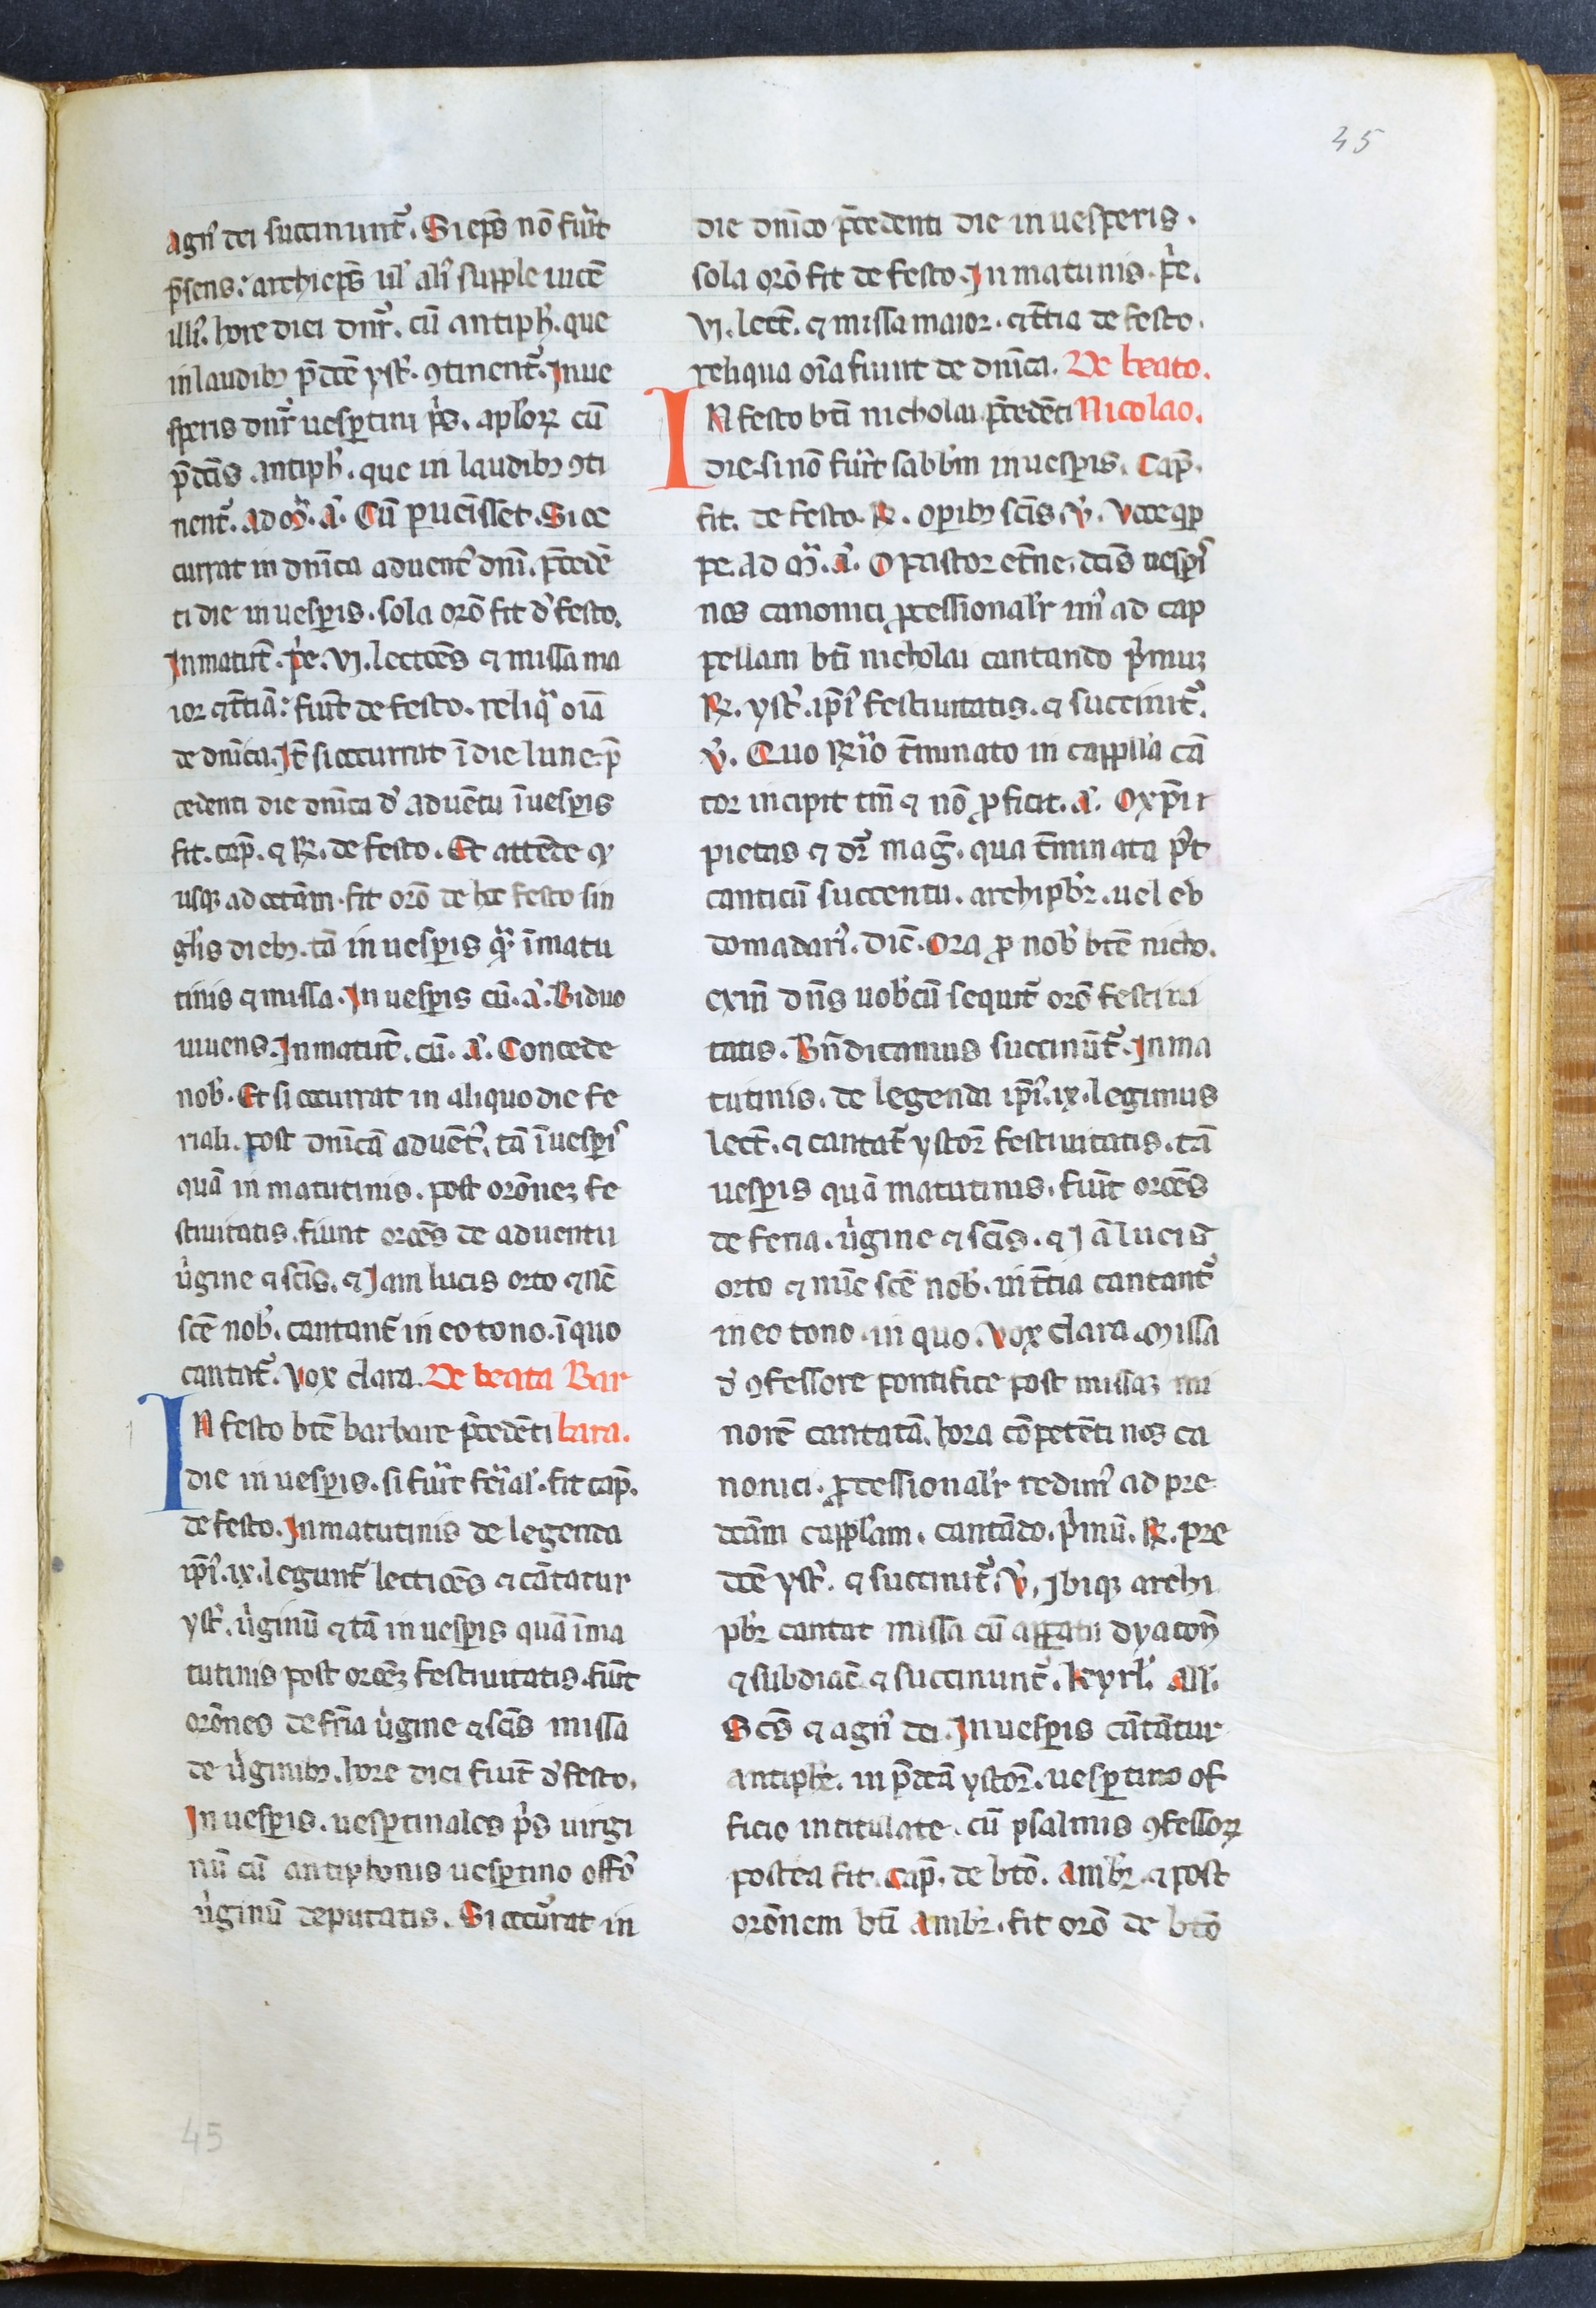 45
agn᷒ dei succinunt᷑. Si ep̄s nō fuit͛
p̄sens: archiep̄s ul᷑ ali᷒ supple uicē
illi᷒. hore diei dnr᷑. cū antiph̄. que
in laudibꝫ p̄dc̄e yst᷑. ꝯtinent᷑. In ue
speris dnr᷑ uesp̱tini p̄s. apl̄oꝝ cū
p̄dc̄is. antiph̄. que in laudibꝫ ꝯti
nent᷑. Ad m̄. a᷒. Cū puenisset. Si oc
currat in dn̄ica aduent᷒ dn̄i. p̄cedē
ti die in uesp̱is. sola orō fit d᷒ festo.
In matut̄. p᷒e. vj. lecc̄oēs ⁊ missa ma
ior ⁊ t̄tia: fiūt de festo. reliqͣ oīa
de dn̄ica. It̄ si occurrat ī die lune. p̄
cedenti die dn̄ica d᷒ aduētu ī uesp̱is
fit. cap̄. ⁊ ℞. de festo. Et attēde ꝙ
usqꝫ ad octām. fit orō de hoc festo sin
gl̄is diebꝫ. tā in uesp̱is qͣ᷒ ī matu
tinis ⁊ missa. In uesp̱is cū. a᷒. Biduo
uiuens. In matut̄. cū. a᷒. Concede
nob᷒. Et si occurrat in aliquo die fe
riali. post dn̄icā aduēt᷒. tā ī uesp̱i᷒
quā in matutinis. post orōneꝫ fe
stiuitatis. fiunt orōēs de aduentu
u᷒gine ⁊ scīs. ⁊ Jam lucis orto ⁊ nc̄
scē nob᷒. cantant᷑ in eo tono. ī quo
cantat᷑. Vox clara. De beata Bar
IN festo btē barbare p̄cedēti bara.
die in uesp̱is. si fuit͛ feial᷒. fit cap̄.
de festo. In matutinis de legenda
ip̄i᷒. ix. legunt᷑ lectiōēs ⁊ cātatur
yst᷒. u᷒ginū ⁊ tā in uesp̱is quā ī ma
tutinis post orōeꝫ festiuitatis. fiūt
orōnes de fr̄ia u᷒gine ⁊ scīs missa
de u᷒ginibꝫ. hore diei fiūt d᷒ festo.
In uesp̱is. uesp̱tinales p̄s uirgi
nū cū antiphonis uesp̱tino offō
u᷒ginū deputatis. Si occurat in
die dn̄ico p̄cedenti die in uesperis.
sola orō fit de festo. In matunis. p᷒e.
vj. lect̄. ⁊ missa maior. ⁊ t̄tia de festo.
reliqua oīa fiunt de dn̄ica. De beato.
IN festo btī nicholai p̄cedēti Nicolao.
die. si nō fuit͛ sabb̄m in uesp̱is. Cap̄.
fit. de festo. ℞. op̱ibꝫ scīs. v᷒. Voce qp̱
pe. ad m̄. a᷒. O pastor et̄ne. dc̄is uesp̱i᷒
nos canonici ꝓcessional᷒r im᷒ ad cap
pellam btī nicholai cantando p᷒muꝫ
℞. yst᷒. ip̄i᷒ festiuitatis. ⁊ succinit᷑.
v᷒. Quo ℞io t̄minato in cappll̄a cā
tor incipit tm̄ ⁊ nō ꝓficit. a᷒. O xp̄i
pietas ⁊ dr᷑ mag̅. qua t̄minata p᷒t
canticū succentu. archipb̄r. uel eb
domadari᷒. dic̄. Ora ꝓ nob᷒ btē nicho.
exin̄ dn̄s uob᷒cū sequit᷑ orō festiui
tatis. Bn̄dicamus succinūt᷑. In ma
tutinis. de legenda ip̄i᷒. ix. legimus
lect̄. ⁊ cantat᷑ ystor̄ festiuitatis. tā
uesp̱is quā matutinis. fiūt orōēs
de feria. u᷒gine ⁊ scīs. ⁊ Jā lucis
orto ⁊ nūc scē nob᷒. in t̄tia cantant᷑
in eo tono. in quo. Vox clara. Missa
d᷒ ꝯfessore pontifice post missaꝫ mi
norē cantatā. hora cōpetēti nos ca
nonici. ꝓcessional᷒r redim᷒ ad pre
dcām cappl̄am. cantādo. p᷒mū. ℞. pre
dc̄e yst᷒. ⁊ succinit᷑. v᷒. Ibiqꝫ archi
pb̄r cantat missā cū apparatu dyacon̄
⁊ subdiac̄ ⁊ succinunt᷑. kyrl᷒. All᷒.
Sc̄s ⁊ agn᷒ dei. In uesp̱is cātātur
antiphē. in p̄dc̄a ystor̄. uesp̱tino of
ficio intitulate. cū psalmis ꝯfessoꝝ
postea fit. Cap̄. de btō. Ambr᷒. ⁊ post
orōnem btī Ambr᷒. fit orō de btō
45